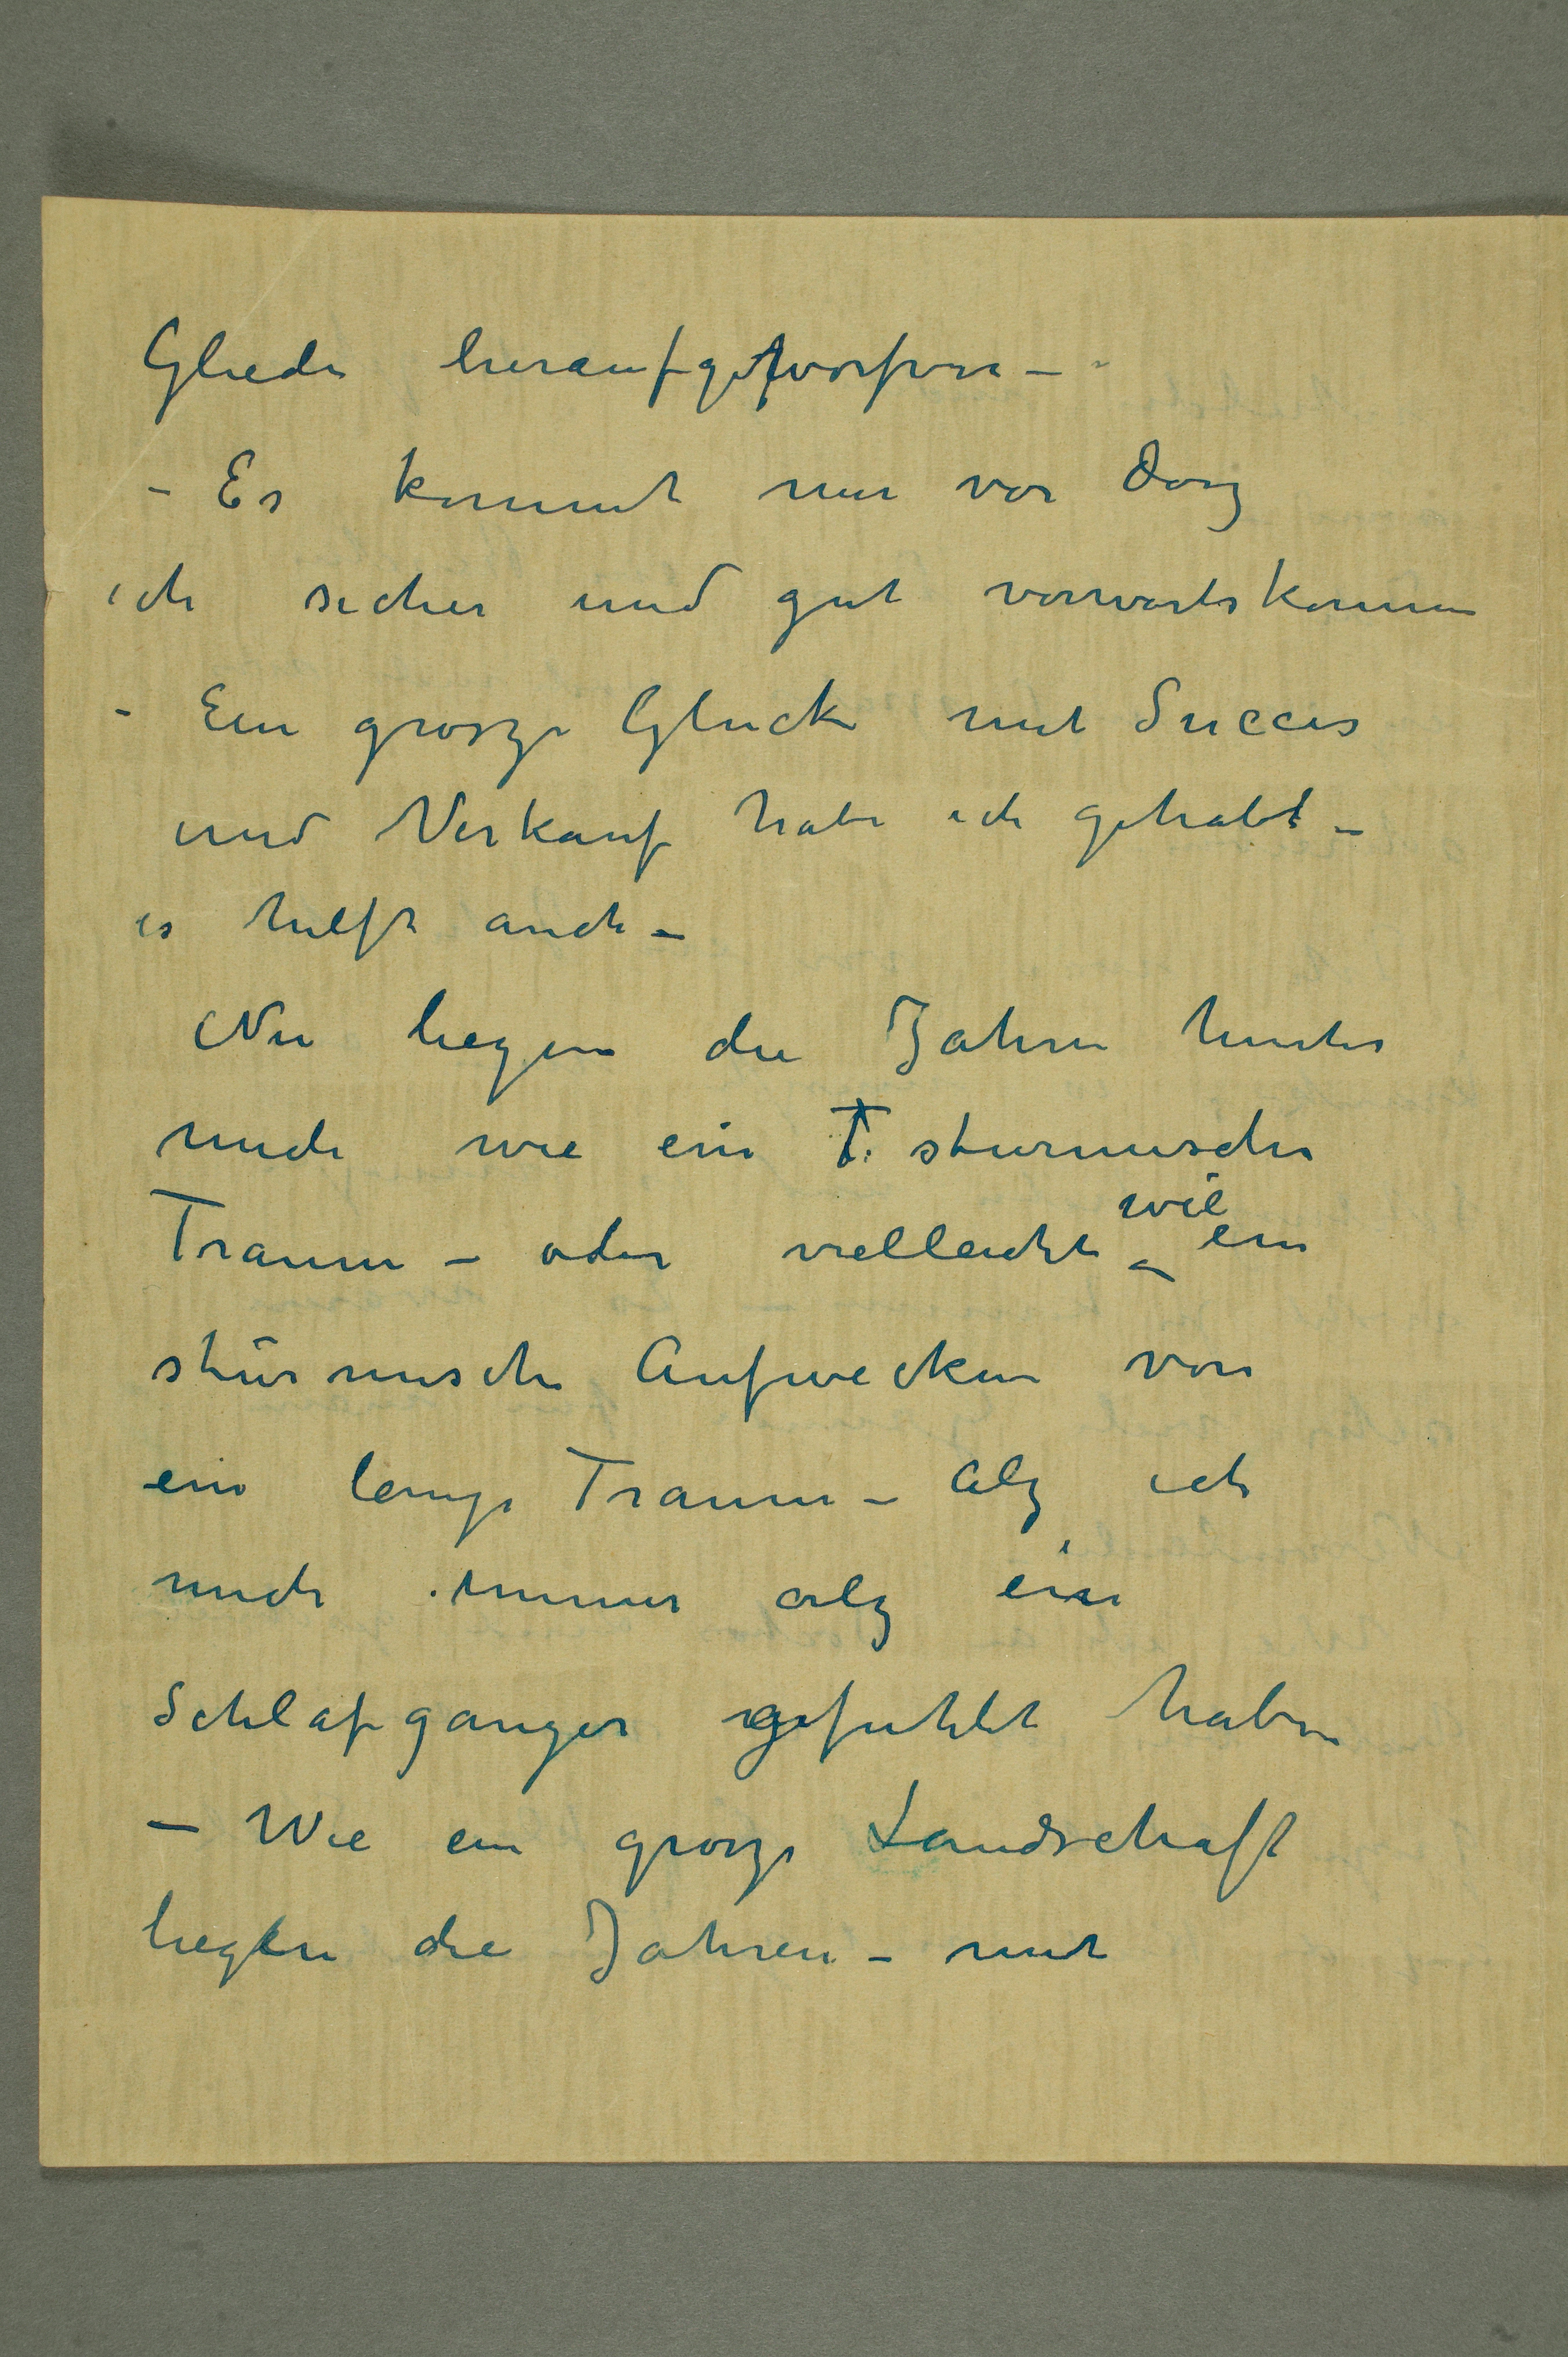 Glieder heraufgeworfen –
– Es kommt mir vor dasz
ich sicher und gut vorwärtskomme
– Ein grosze Glück mit Succes
und Verkauf habe ich gehabt –
es hilft auch –
Nu liegen die Jahren hinter
mich wie ein T. sturmischer
Traum – oder vielleicht wie ein
stürmische Aufwecken von
ein lange Traum – Alz ich
mich immer alz ein
Schlafganger gefuhlt habe
– Wie ein grosze Landschaft
liegen die Jahren – mit